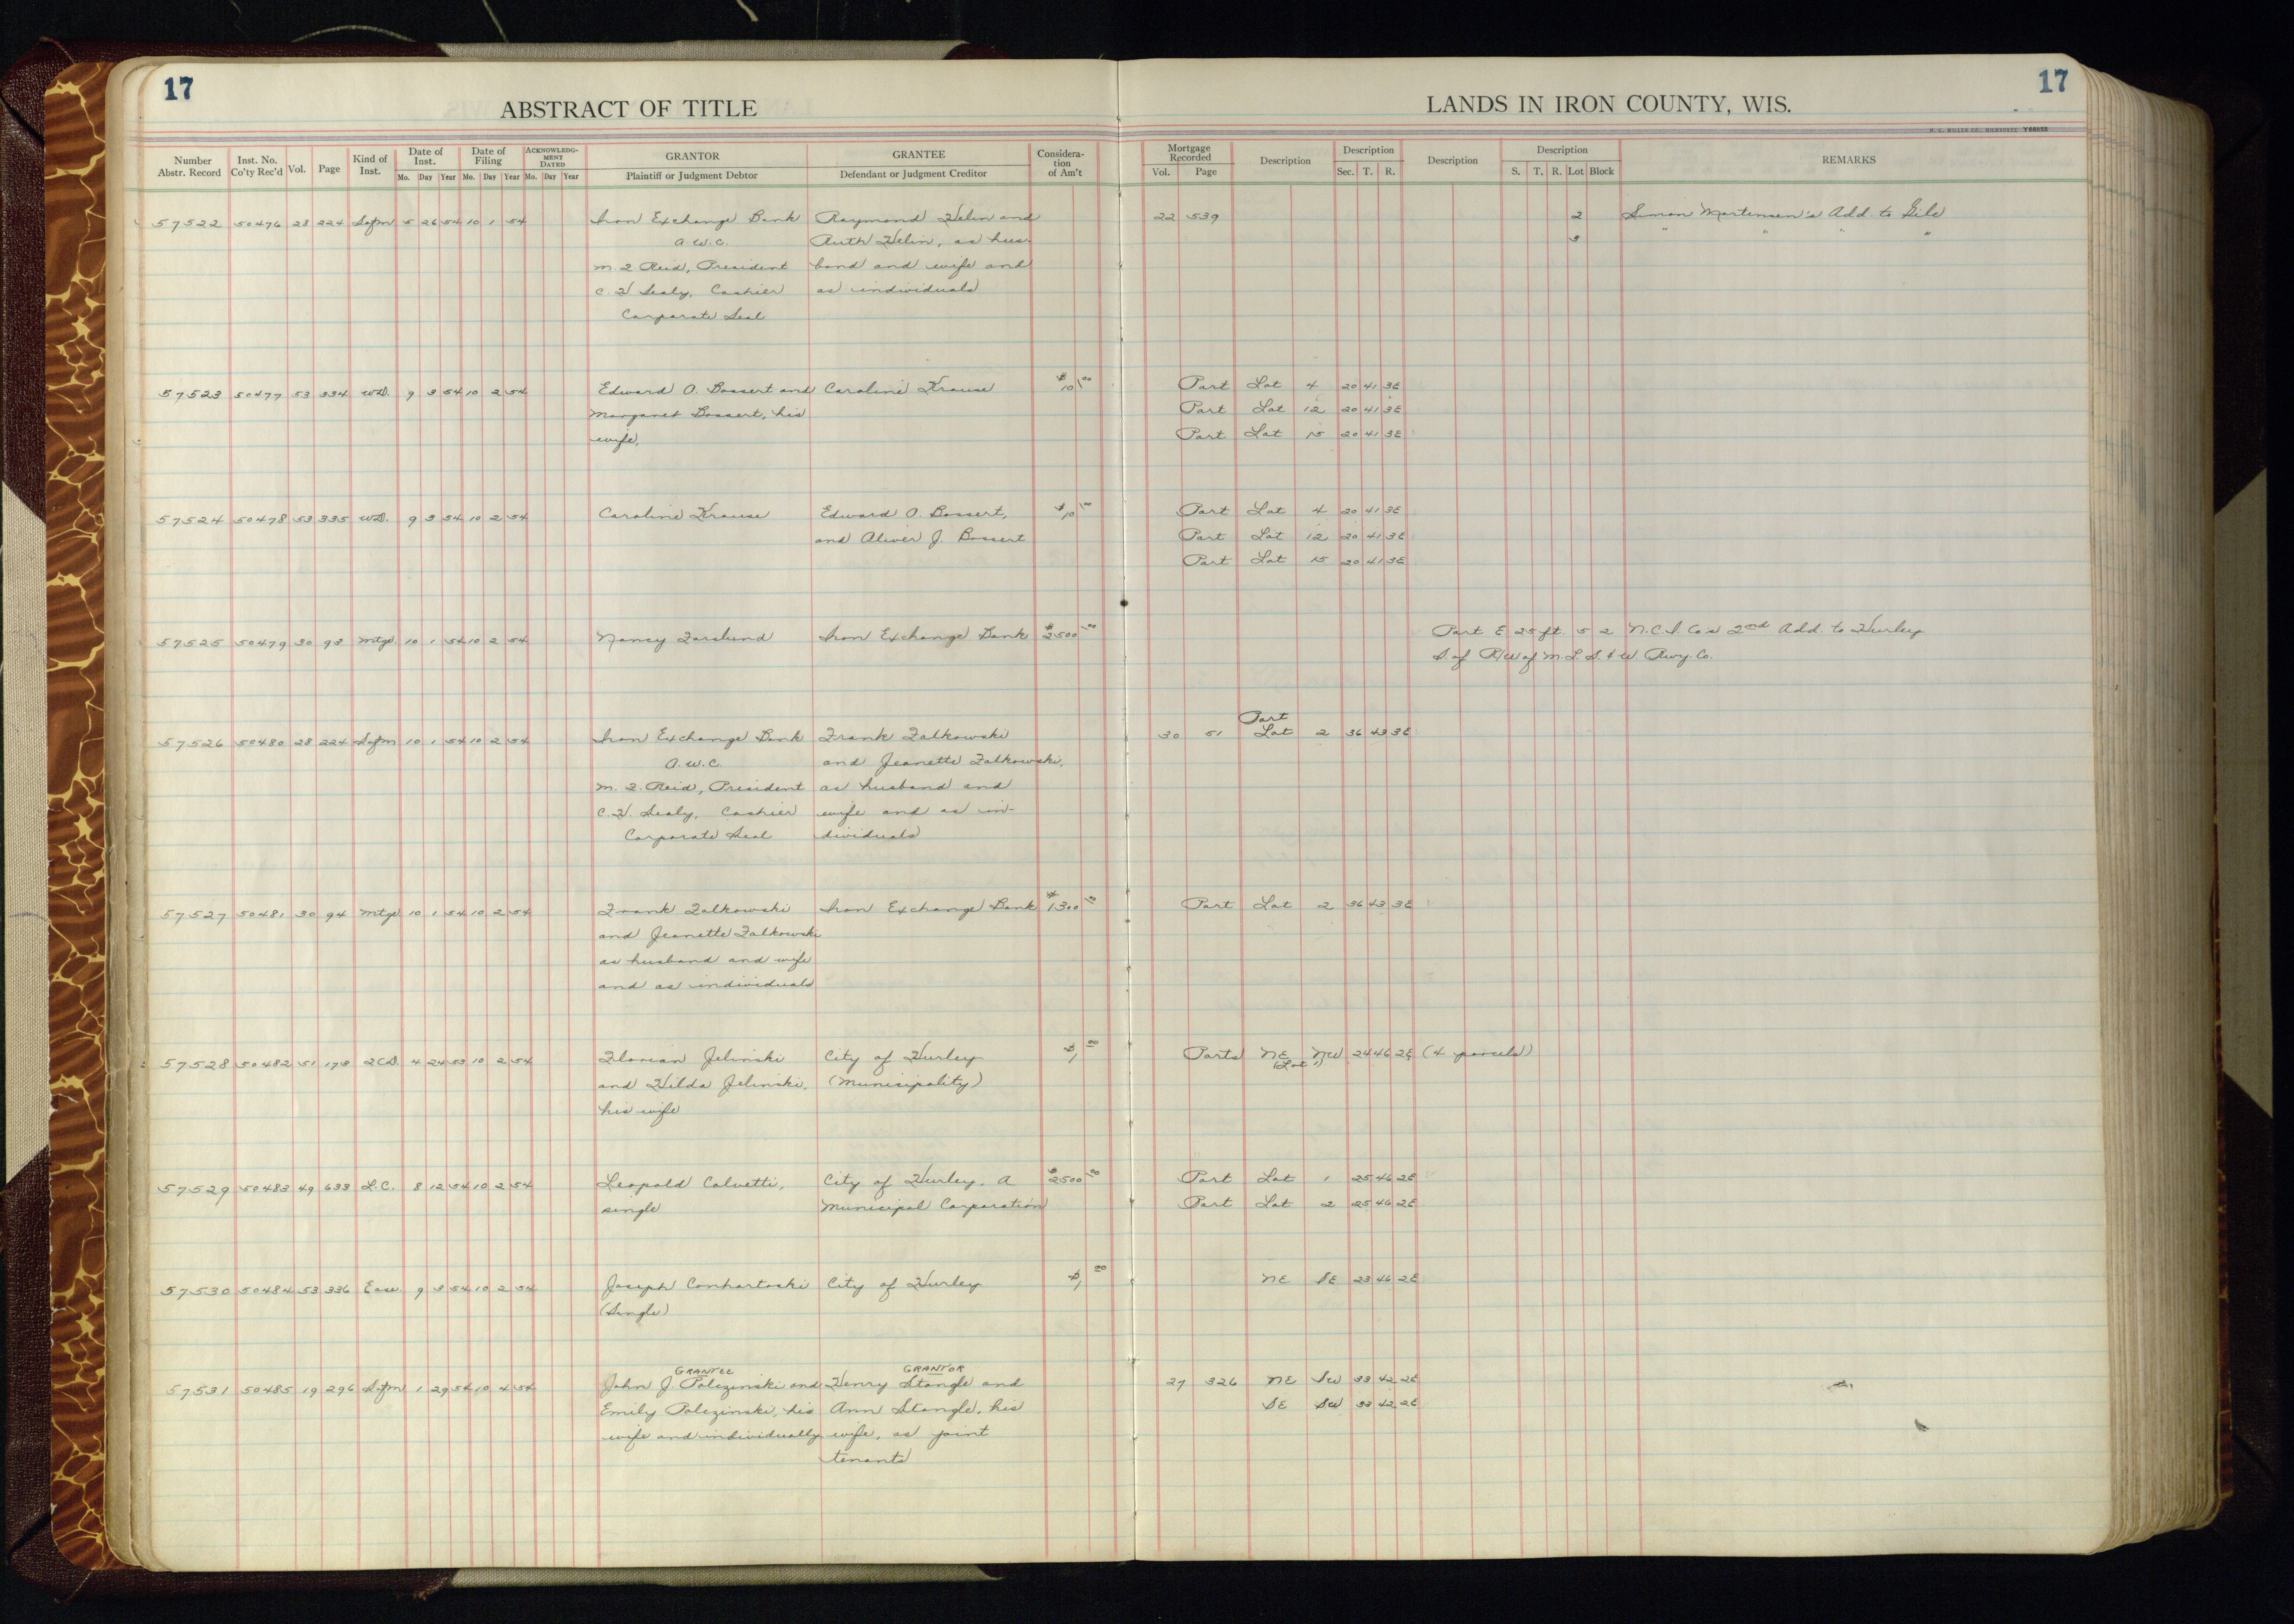 17
17
ABSTRACT OF TITLE
LANDS IN IRON COUNTY, WIS.
H. C. MILLER CO., MILWAUKEE Y68055
Number Abstr. Record Inst. No. Co'ty Rec'd Vol. Page Kind of Inst. Date of Inst. Mo. Day Year Date of Filing Mo. Day Year ACKNOWLEDGMENT DATED Mo. Day Year GRANTOR Plaintiff or Judgment Debtor GRANTEE Defendant or Judgment Creditor Consideration of Am't Mortgage Recorded Vol. Page Description Description Sec. T. R. Description Description S. T. R. Lot Block REMARKS
57522 50476 28 224 Sofm 5 26 54 10 1 54 Iron Exchange Bank Raymond Helin and 22 539 2 Simon Mortensen's Add. to Gile
A.W.C. Ruth Helin, as hus- 3 " " " "
M. J. Reid, President band and wife and
C. H. Sealy, Cashier as individuals
Corporate Seal
57523 50477 53 334 WD. 9 3 54 10 2 54 Edward O. Bossert and Caroline Krause $10.00 Part Lot 4 20 41 3E
Margaret Bossert, his Part Lot 12 20 41 3E
wife, Part Lot 15 20 41 3E
57524 50478 53 335 WD. 9 3 54 10 2 54 Caroline Krause Edward O. Bossert, $10.00 Part Lot 4 20 41 3E
and Oliver J. Bossert Part Lot 12 20 41 3E
Part Lot 15 20 41 3E
57525 50479 30 93 Mtge. 10 1 54 10 2 54 Nancy Forslund Iron Exchange Bank $2500.00 Part E 25 ft. 5 2 N.C.I. Co's 2nd Add. to Hurley
S. of R/W of M. L. S. & W. Rwy. Co.
Part
57526 50480 28 224 Sofm 10 1 54 10 2 54 Iron Exchange Bank Frank Falkowski 30 51 Lot 2 36 43 3E
A.W.C. and Jeanette Falkowski,
M. J. Reid, President as husband and
C. H. Sealy, Cashier wife and as in-
Corporate Seal dividuals
57527 50481 30 94 Mtge 10 1 54 10 2 54 Frank Falkowski Iron Exchange Bank $1300.00 Part Lot 2 36 43 3E
and Jeanette Falkowski
as husband and wife
and as individuals
57528 50482 51 178 2CD. 4 24 53 10 2 54 Florian Jelinski City of Hurley $1.00 Parts NE NW 24 46 2E (4 parcels)
(Lot 1)
and Hilda Jelinski, (Municipality)
his wife
57529 50483 49 633 L.C. 8 12 54 10 2 54 Leopold Calvetti, City of Hurley, A $2500.00 Part Lot 1 25 46 2E
single Municipal Corporation Part Lot 2 25 46 2E
57530 50484 53 336 Ease. 9 3 54 10 2 54 Joseph Conhartoski City of Hurley $1.00 NE SE 23 46 2E
(Single)
GRANTEE GRANTOR
57531 50485 19 296 Sofm 1 29 54 10 4 54 John J. Polczinski and Henry Stangle and 27 326 NE SW 33 42 2E
Emily Polczinski, his Ann Stangle, his SE SW 33 42 2E
wife and individually wife, as joint
tenants